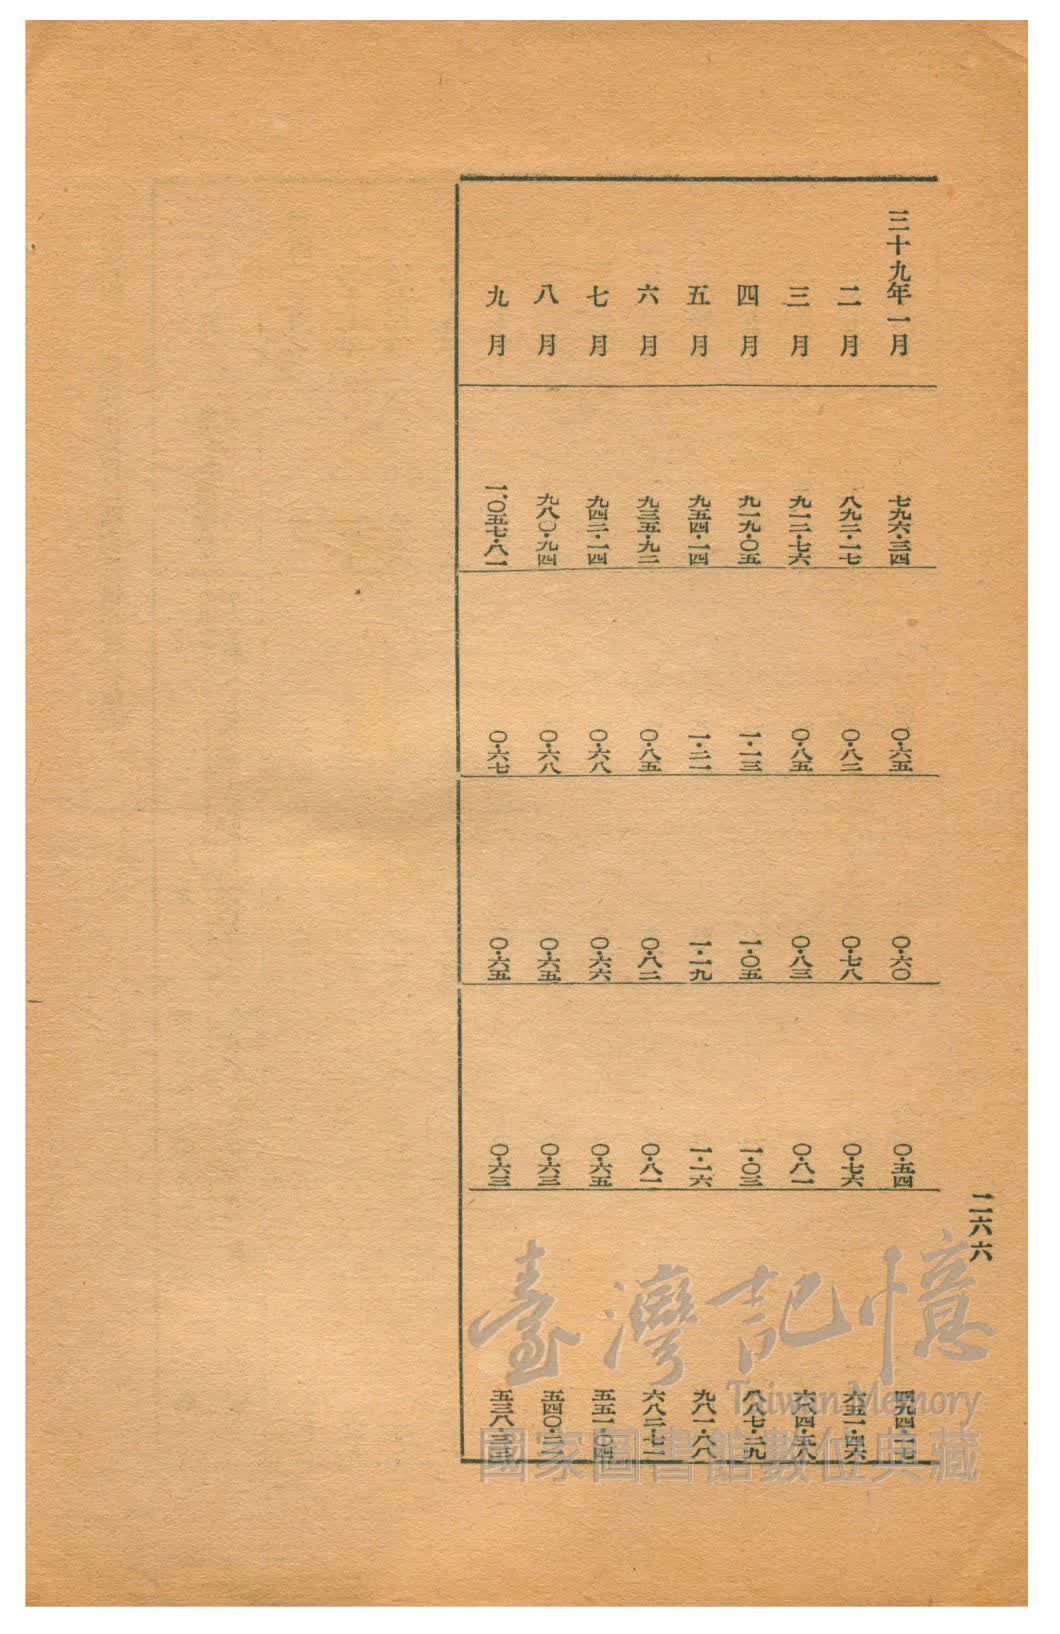 二六六
三十九年一月 七九六・三四 〇・六五 〇・六〇 〇・五四 四九四・一七
二月 八九二・一七 〇・八二 〇・七八 〇・七六 六五一・四六
三月 九一二・七六 〇・八五 〇・八三 〇・八一
四月 九一九・〇五 一・一三 一・〇五 一・〇三 八八七・二九
五月 九五四・一四 一・二一 一・一九 一・一六 九八一・八八
六月 九三五・九二 〇・八五 〇・八二 〇・八一 六八二・七二
七月 九四二・一四 〇・六八 〇・六六 〇・六五 五五一・〇四
八月 九八〇・九四 〇・六八 〇・六五 〇・六三 五四〇・二二
九月 一、〇五七・八一 〇・六七 〇・六五 〇・六三
臺灣記憶
Taiwan Memory
國家圖書館數位典藏